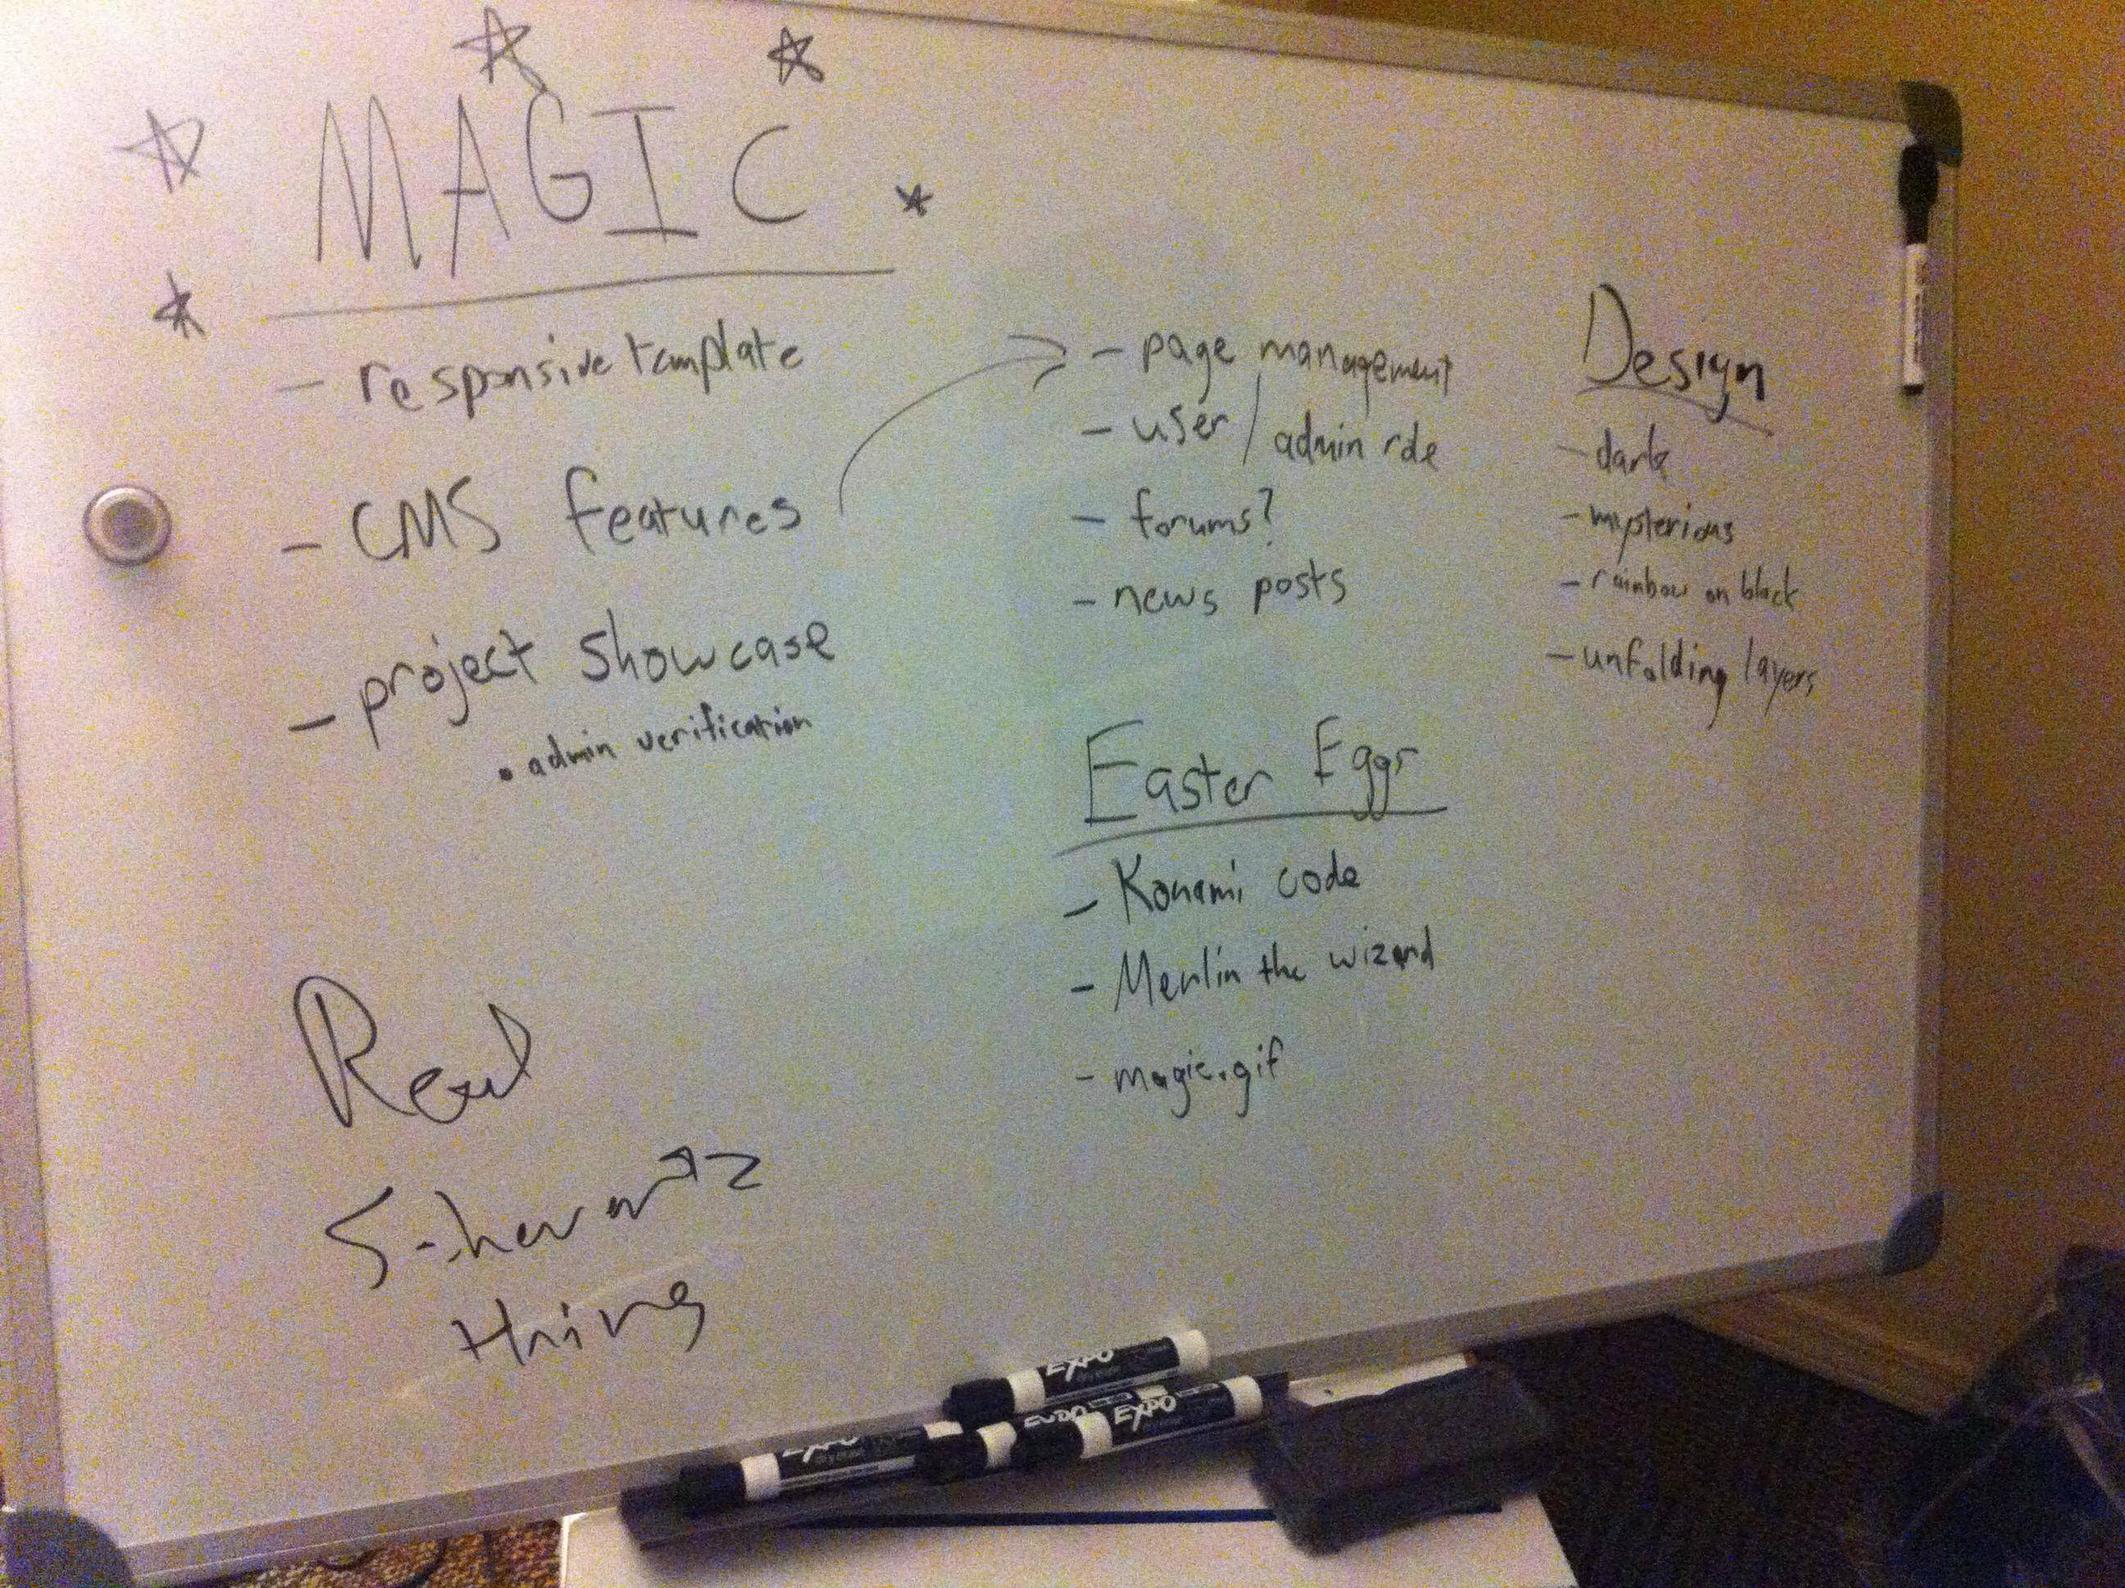 MAGIC
- responsive template
- CMS features
- project showcase
• admin verification
- page management
- user / admin role
- forums?
- news posts
Design
- dark
- mysterious
- rainbow on black
- unfolding layers
Easter Eggs
- Konami code
- Merlin the wizard
- magic.gif
Read
thing
EXPO
EXPO
EXPO
EXPO